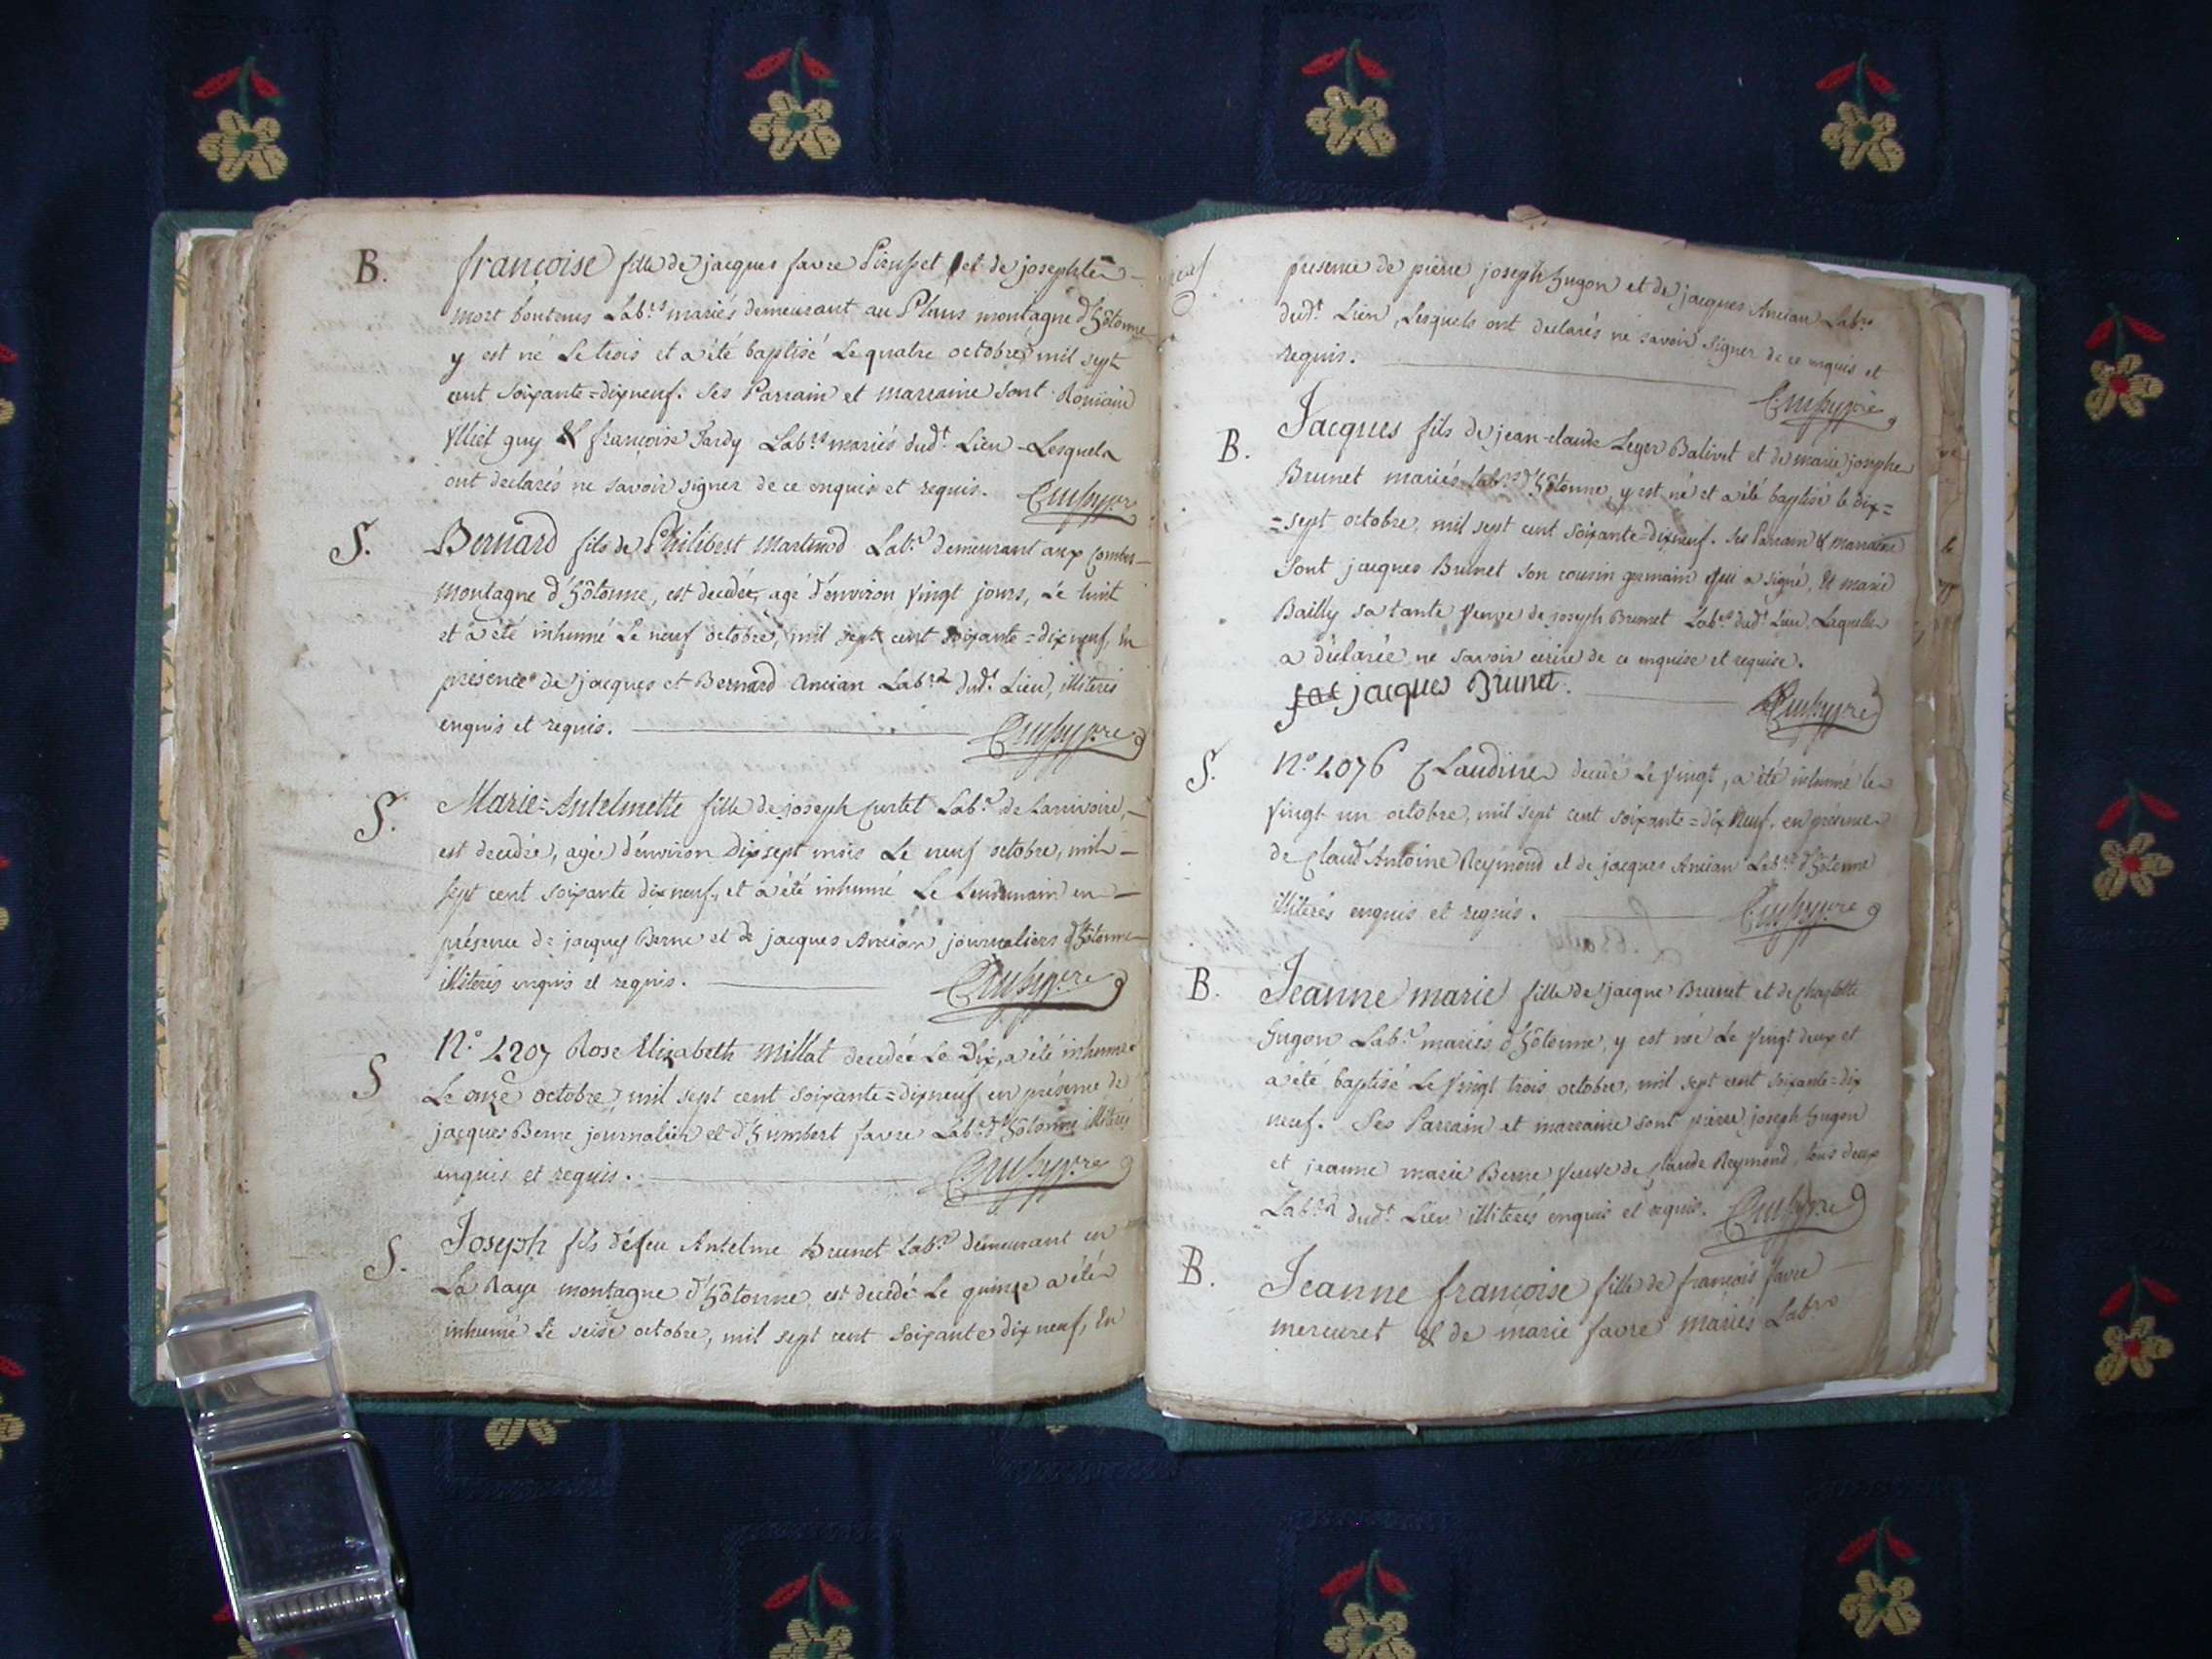 B. françoise fille de jacques favre et de josephte
mort boutous Lab.rs mariés demeurant au Plans montagne d'hôtonne
y est né Le trois et a été baptisé Le quatre octobre mil sept
cent soixante=dixneuf. Ses Parrain et marraine sont Romain
guy & françoise Tardy Lab.rs mariés dud.t Lieu Lesquels
ont declarés ne savoir signer de ce enquis et requis.
S. Bernard fils de Philibert Martinod Lab.r demeurant aux Combes
montagne d'hôtonne, est decedée, agé d'environ vingt jours, Le huit
et a été inhumé Le neuf octobre, mil sept cent soixante=dixneuf, en
présence de jacques et Bernard Ancian Lab.rs dud.t Lieu, illiterés
enquis et requis.
S. Marie=Antelmette fille de joseph Curtet Lab.r de
est decedée, agée d'environ dix sept mois Le neuf octobre, mil
sept cent soixante dixneuf, et a été inhumé Le Lendemain en
présence de jacques Berne et de jacques Ancian journaliers d'hôtonne
illiterés enquis et requis.
S N.o Rose Elizabeth Millat decedée Le dix, a été inhumée
Le onze octobre mil sept cent soixante=dixneuf en présence de
jacques Berne journalier et d'humbert favre Lab.r d'hôtonne illiterés
enquis et requis.
S. Joseph fils de feu Antelme Brunet Lab.r demeurant en
La Raye montagne d'hôtonne est decedé Le quinze a été
inhumé Le seise octobre, mil sept cent soixante dix neuf, en
présence de pierre joseph hugon et de jacques Ancian Lab.rs
dud.t Lieu, Lesquels ont declarés ne savoir signer de ce enquis et
requis.
B. Jacques fils de jean-claude Leger Balivet et de marie josephe
Brunet mariés Lab.rs d'hôtonne, y est né et a été baptisé le dix=
=sept octobre, mil sept cent soixante=dixneuf. ses Parrain & marraine
sont jacques Brunet son cousin germain qui a signé, & marie
Bailly sa tante veuve de joseph Brunet Lab.rs dud.t Lieu, Laquelle
a déclarée ne savoir ecrire de ce enquise et requise.
jacques Brunet
S. N.o 2076 Claudine decedé Le vingt, a été inhumé le
vingt un octobre, mil sept cent soixante=dix neuf, en présence
de Claud Antoine Reymond et de jacques Ancian Lab.rs d'hôtonne
illiterés enquis et requis.
B. Jeanne marie fille de jacque Brunet et de Charlotte
hugon Lab.rs mariés d'hôtonne, y est née Le vingt deux et
a été baptisé Le vingt trois octobre, mil sept cent soixante=dix
neuf. Ses Parrain et marraine sont pierre joseph hugon
et jeanne marie Berne veuve de Claude Reymond, tous deux
Lab.rs dud.t Lieu illiterés enquis et requis.
B. Jeanne françoise fille de françois favre
mercuret & de marie favre mariés Lab.rs